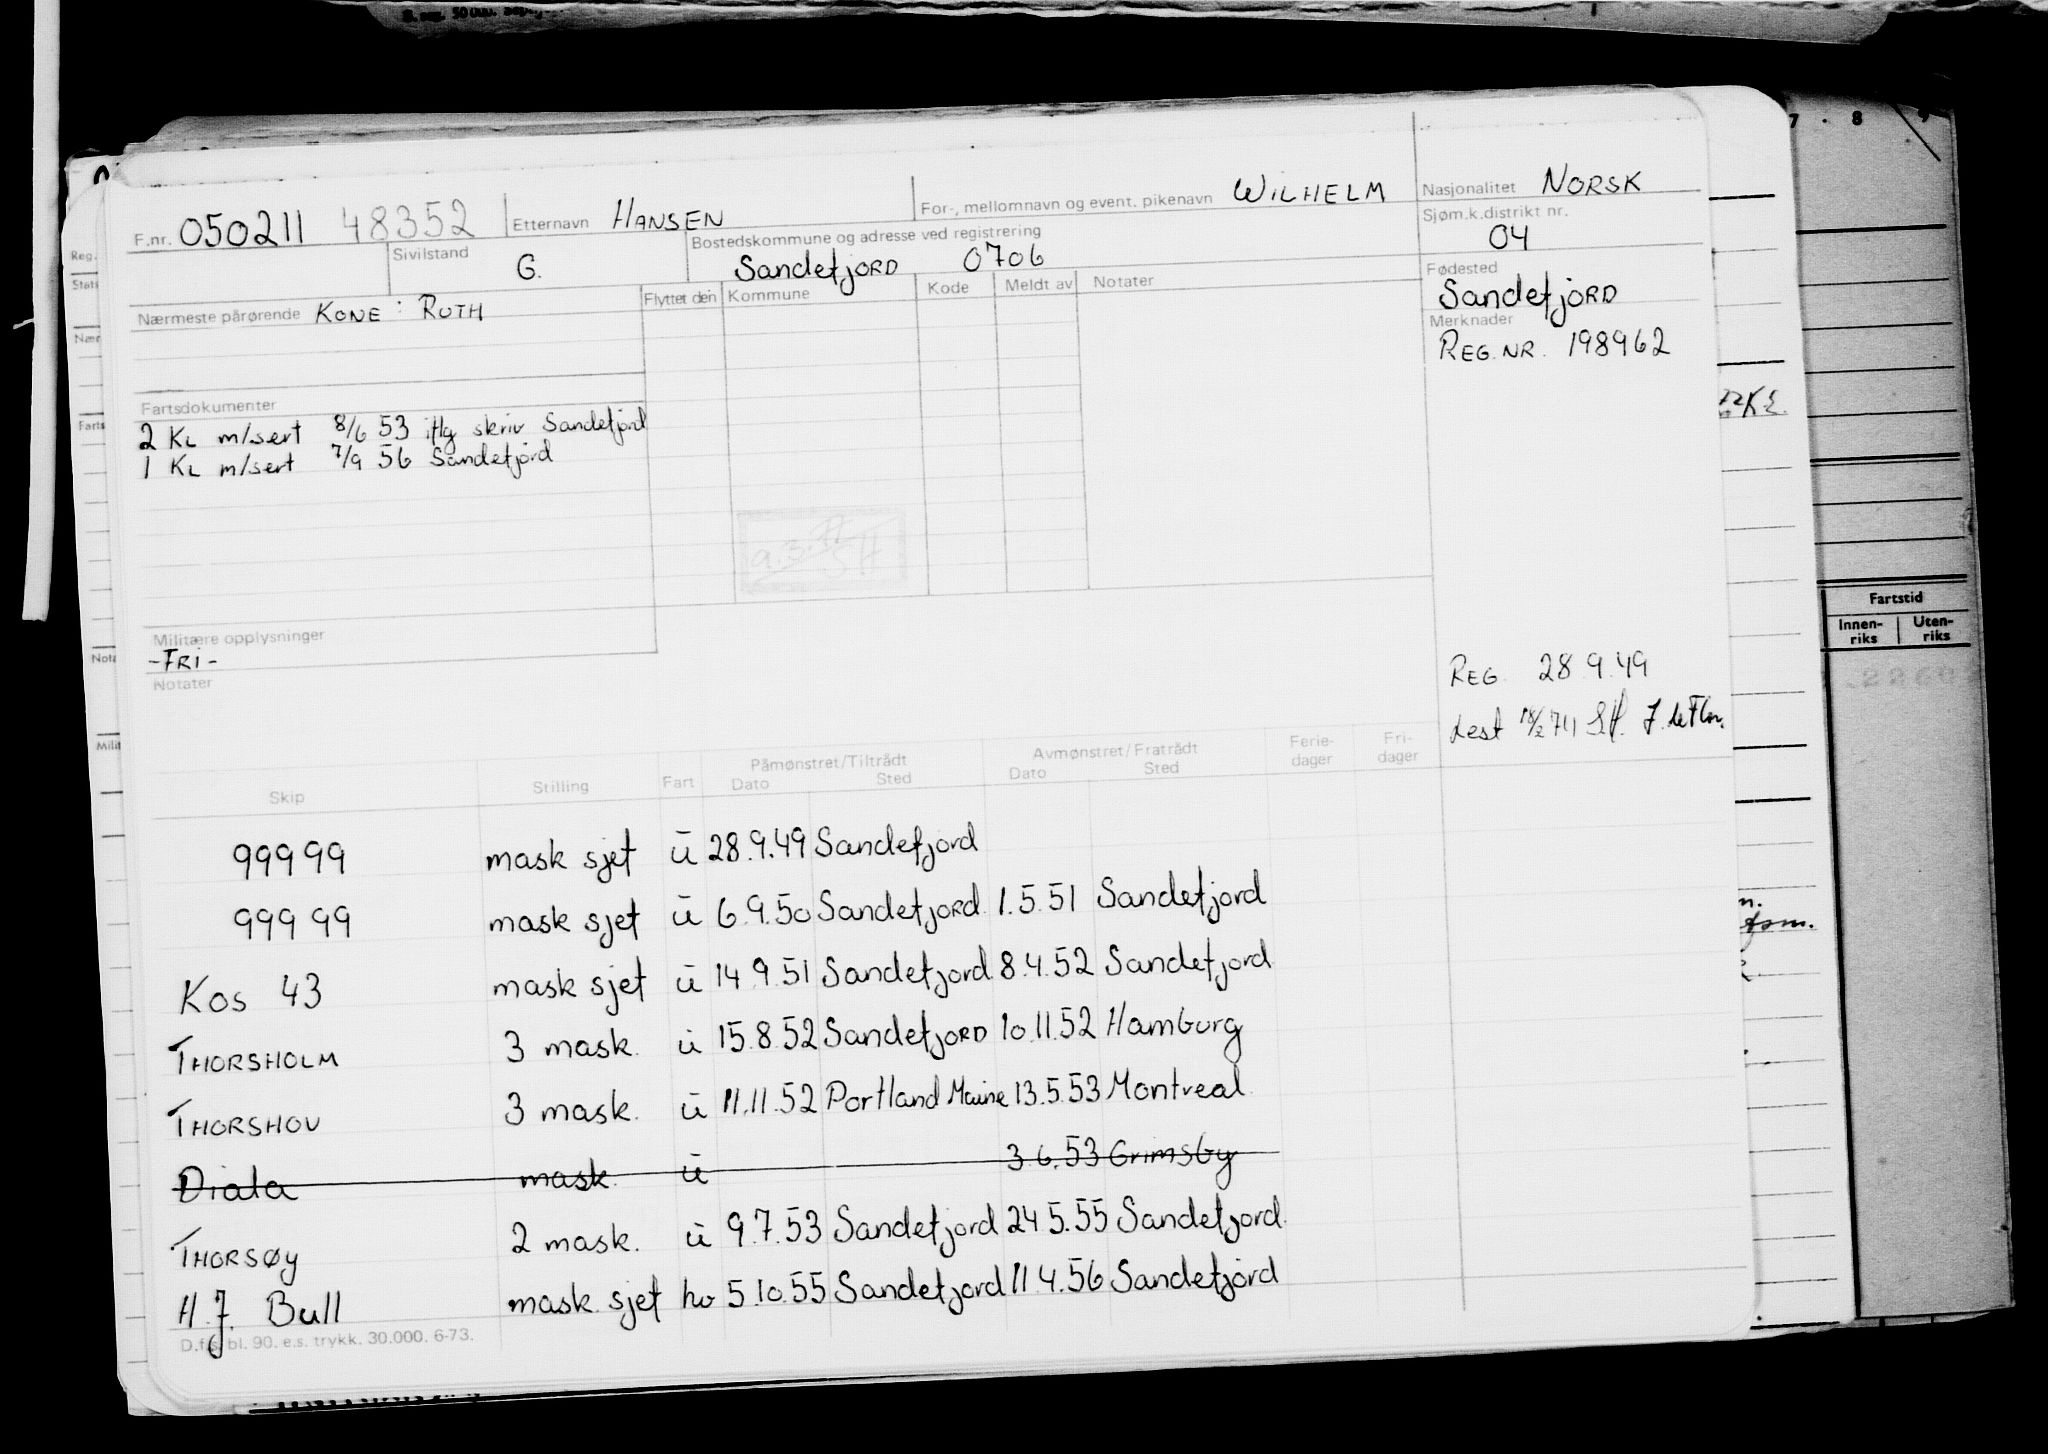 F.nr. 050211 48352 Etternavn HANSEN For-, mellomnavn og event. pikenavn WILHELM Nasjonalitet NORSK
Sivilstand G. Bostedskommune og adresse ved registrering Sandefjord 0706 Sjøm.k.distrikt nr. 04
Nærmeste pårørende KONE: RUTH Flyttet den Kommune Kode Meldt av Notater Fødested Sandefjord
Merknader
REG.NR. 198962
Fartsdokumenter
2 KL m/sert 8/6 53 iflg skriv Sandefjord
1 KL m/sert 7/9 56 Sandefjord
Militære opplysninger
-FRI-
Notater
REG. 28.9.49
Lest 18/2 74
Skip Stilling Fart Påmønstret/Tiltrådt Dato Sted Avmønstret/Fratrådt Dato Sted Ferie-dager Fri-dager
99999 mask sjef ū 28.9.49 Sandefjord
99999 mask sjef ū 6.9.50 Sandefjord 1.5.51 Sandefjord
KOS 43 mask sjef ū 14 9.51 Sandefjord 8.4.52 Sandefjord
THORSHOLM 3 mask. ū 15.8.52 Sandefjord 10.11.52 Hamburg
THORSHOV 3 mask. ū 11.11.52 Portland Maine 13.5.53 Montreal
Diala mask. ū 3.6.53 Grimsby
THORSØY 2 mask. ū 9.7.53 Sandefjord 24 5.55 Sandefjord
H.J. Bull mask. sjef ho 5.10.55 Sandefjord 11.4.56 Sandefjord
D.f.s. bl. 90. e.s. trykk. 30.000. 6-73.
7 8 9
Fartstid
Innen-riks Uten-riks